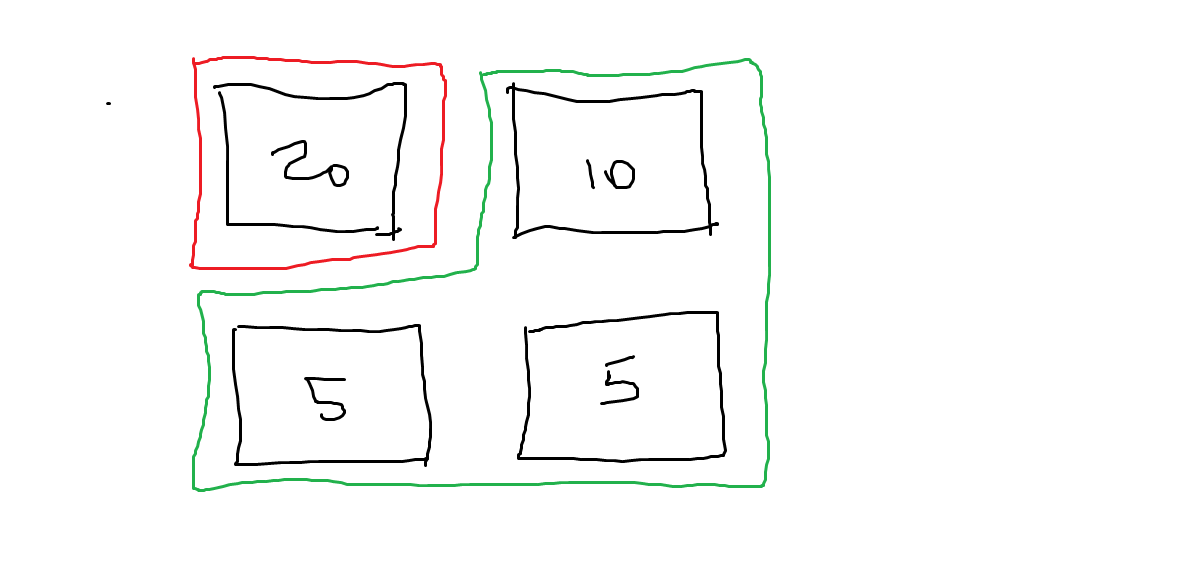 20 10
5 5